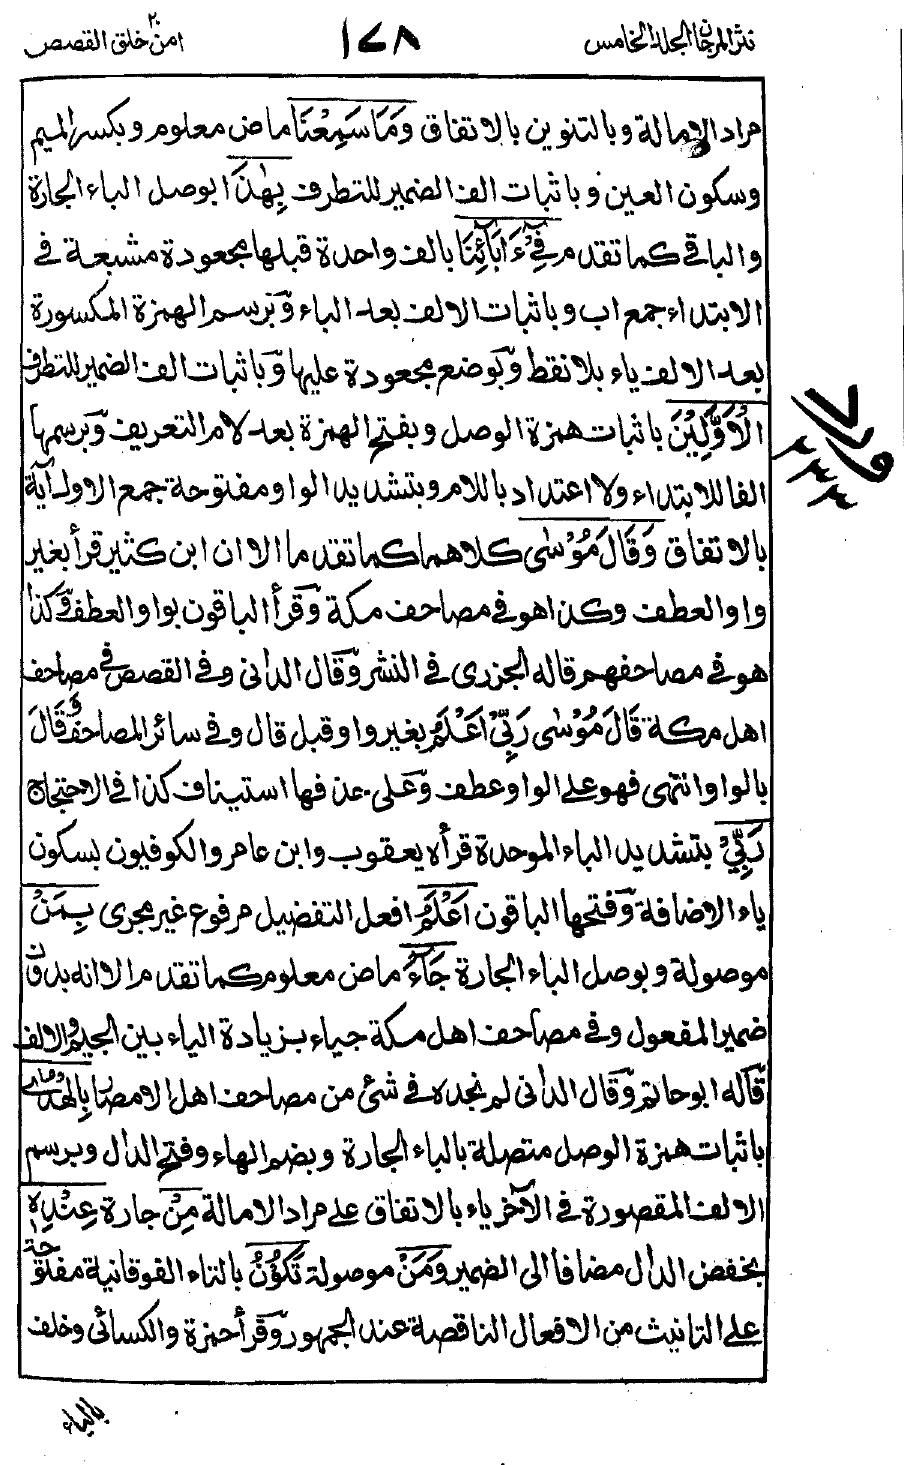 نثر المرجان المجلد الخامس
١٤٨
امن خلق ٢٠ القصص
مراد الامالة وبالتنوين بالاتفاق وَمَا سَمِعْنَا ماض معلوم وبكسر الميم
وسكون العين وباثبات الف الضمير للتطرف بِهٰذَا بوصل الباء الجارة
والباقي كما تقدم فِيْٓ ءَابَآئِنَا بالف واحدة قبلها مجعودة مشبعة في
الابتداء جمع اب وباثبات الالف بعد الباء وبرسم الهمزة المكسورة
بعد الالف ياء بلا نقط وبوضع مجعودة عليها وباثبات الف الضمير للتطرف
الْاَوَّلِيْنَ باثبات همزة الوصل وبفتح الهمزة بعد لام التعريف وبرسمها
الفا للابتداء ولا اعتداد باللام وبتشديد الواو مفتوحة جمع الاول آية
بالاتفاق وَقَالَ مُوْسٰى كلاهما كما تقدم الا ان ابن كثير قرأ بغير
واو العطف وكذا هو في مصاحف مكة وقرأ الباقون بواو العطف وكذا
هو في مصاحفهم قاله الجزرى في النشر وقال الدانى وفي القصص في مصاحف
اهل مكة قَالَ مُوْسٰى رَبِّيْٓ اَعْلَمُ بغير واو قبل قال وفي سائر المصاحف وَقَالَ
بالواو انتهى فهو على الواو عطف وعلى حذفها استيناف كذا في الاحتجاج
رَبِّيْٓ بتشديد الباء الموحدة قرأه يعقوب وابن عامر والكوفيون بسكون
ياء الاضافة وفتحها الباقون اَعْلَمُ افعل التفضيل مرفوع غير مجرى بِمَنْ
موصولة وبوصل الباء الجارة جَآءَ ماض معلوم كما تقدم الا انه بدون
ضمير المفعول وفي مصاحف اهل مكة جياء بزيادة الياء بين الجيم والالف
قاله ابو حاتم وقال الدانى لم نجده في شئ من مصاحف اهل الامصار بِالْهُدٰى
باثبات همزة الوصل متصلة بالباء الجارة وبضم الهاء وفتح الدال وبرسم
الالف المقصورة في الآخر ياء بالاتفاق على مراد الامالة مِنْ جارة عِنْدِهٖ
بخفض الدال مضافا الى الضمير وَمَنْ موصولة تَكُوْنُ بالتاء الفوقانية مفتوحة
على التانيث من الافعال الناقصة عند الجمهور وقرأ حمزة والكسائى وخلف
بالياء